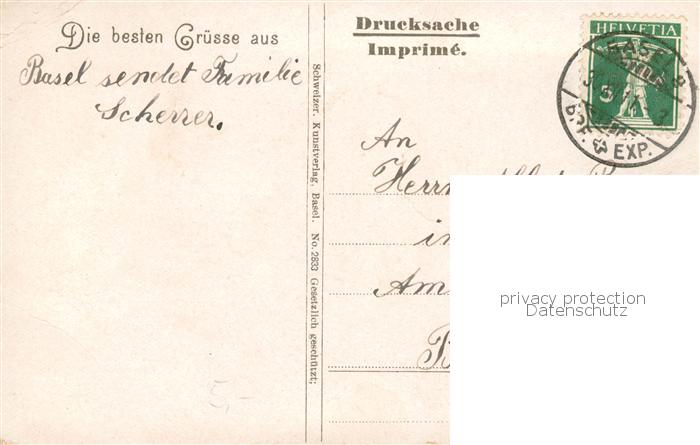 Die besten Grüsse aus
Basel sendet Familie
Scherrer.
Schweizer. Kunstverlag, Basel. No. 2833 Gesetzlich geschützt;
Drucksache
Imprimé.
HELVETIA
5
BASEL 8
BRF. EXP.
An
Herrn
in
Am
privacy protection
Datenschutz
5,-